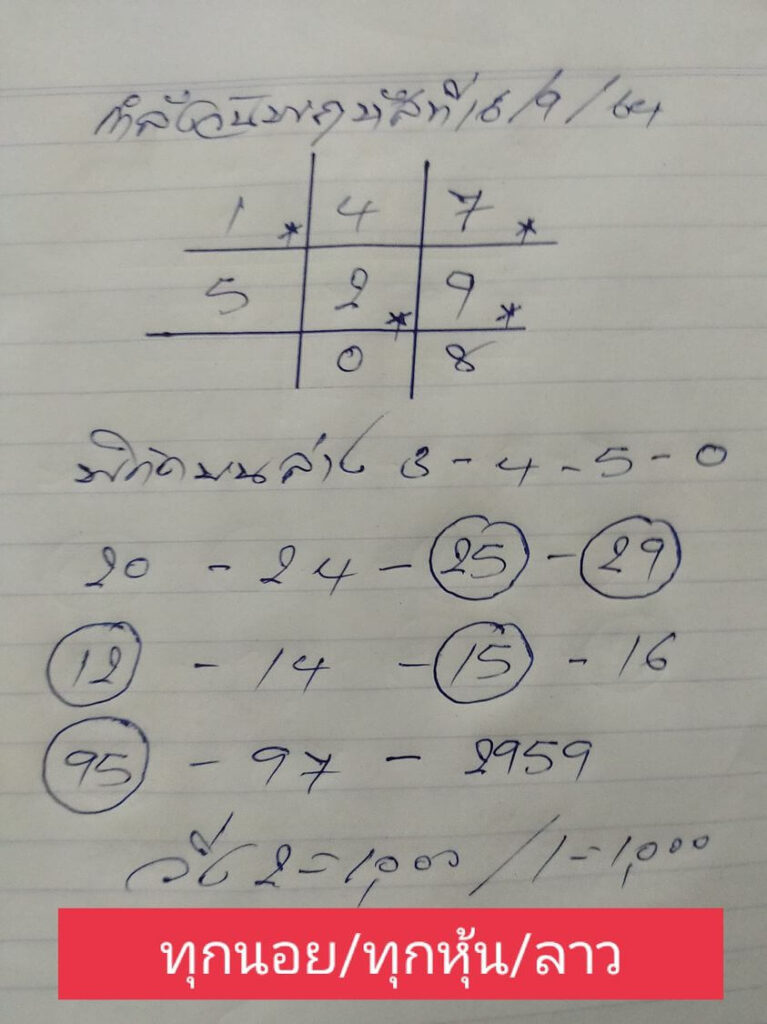 กำลังวันพฤหัสที่ 16/9/64
1* 4 7*
5 2* 9*
0 8
พิกัดบนล่าง 3-4-5-0
20 - 24 - 25 - 29
12 - 14 - 15 - 16
95 - 97 - 2959
วิ่ง 2=1,000 / 1=1,000
ทุกนอย/ทุกหุ้น/ลาว